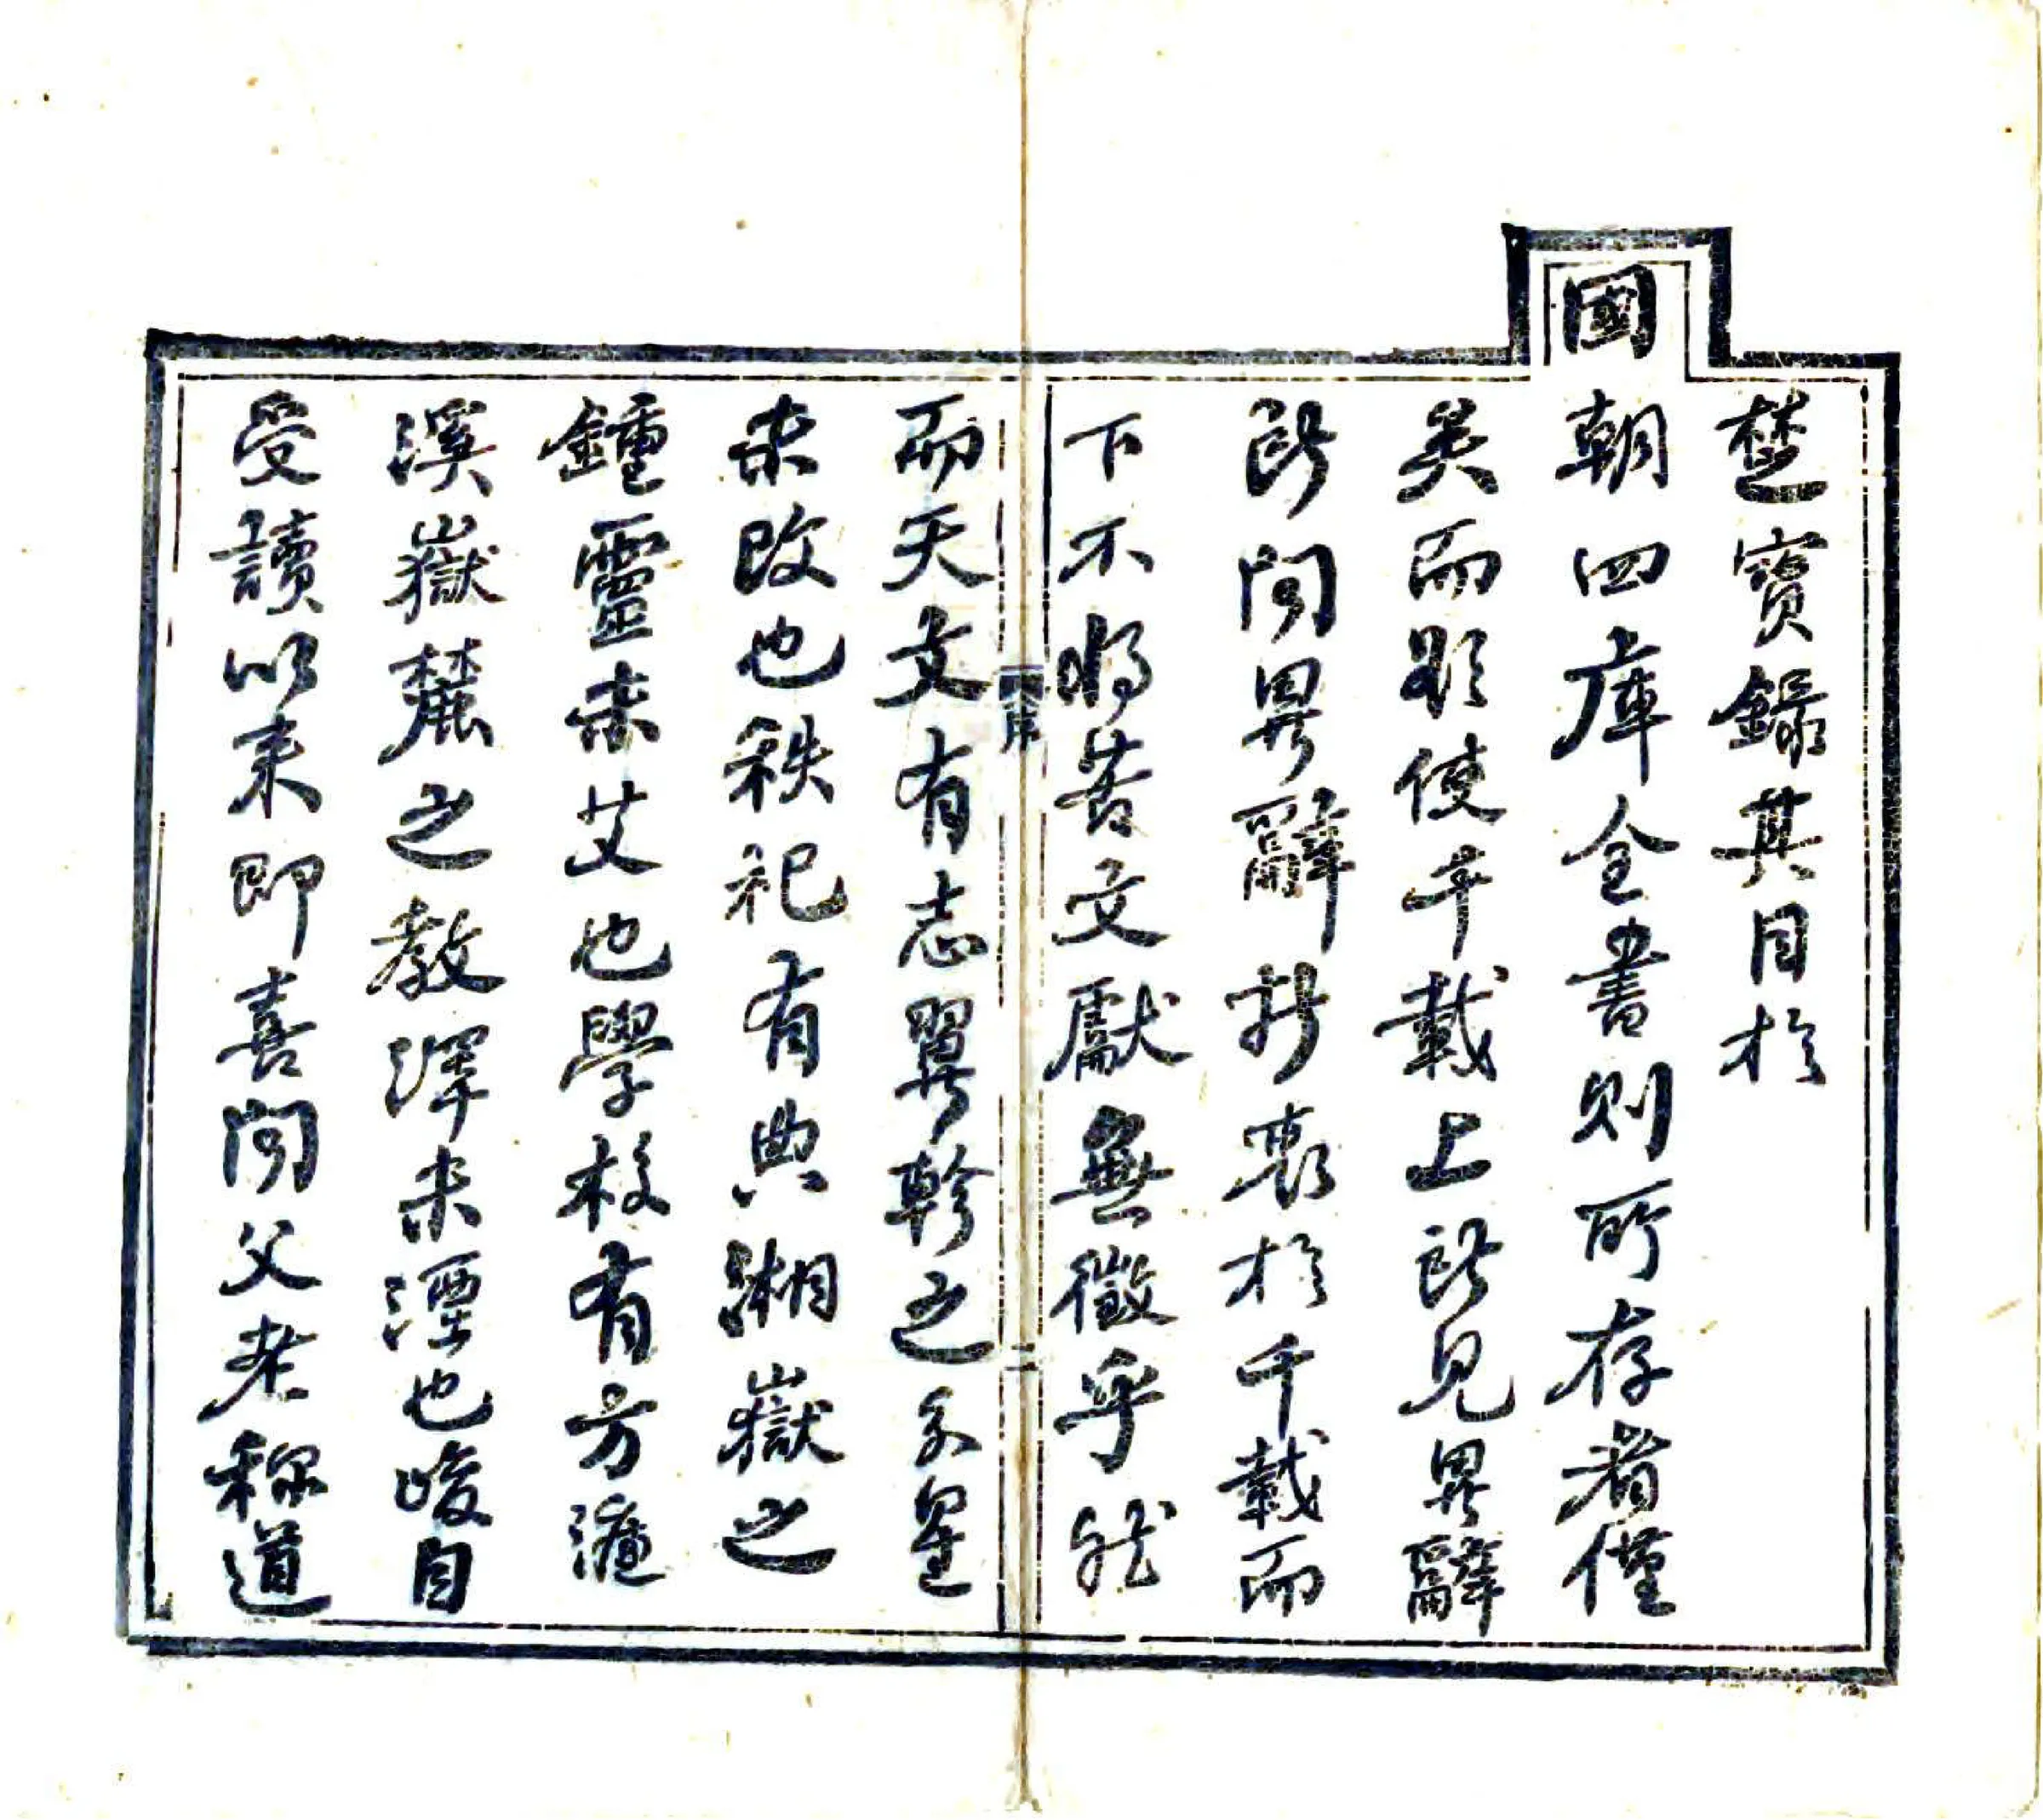 楚寶錄其目於
國朝四庫全書則所存者僅
矣而顧使千載上所見異辭
所聞異辭折衷於千載而
下不將苦文獻無徵乎然
序
二
而天文有志翼軫之分星
未改也秩祀有典湖嶽之
鍾靈未艾也學校有方濂
溪嶽麓之教澤未湮也峻自
受讀以來即喜聞父老稱道